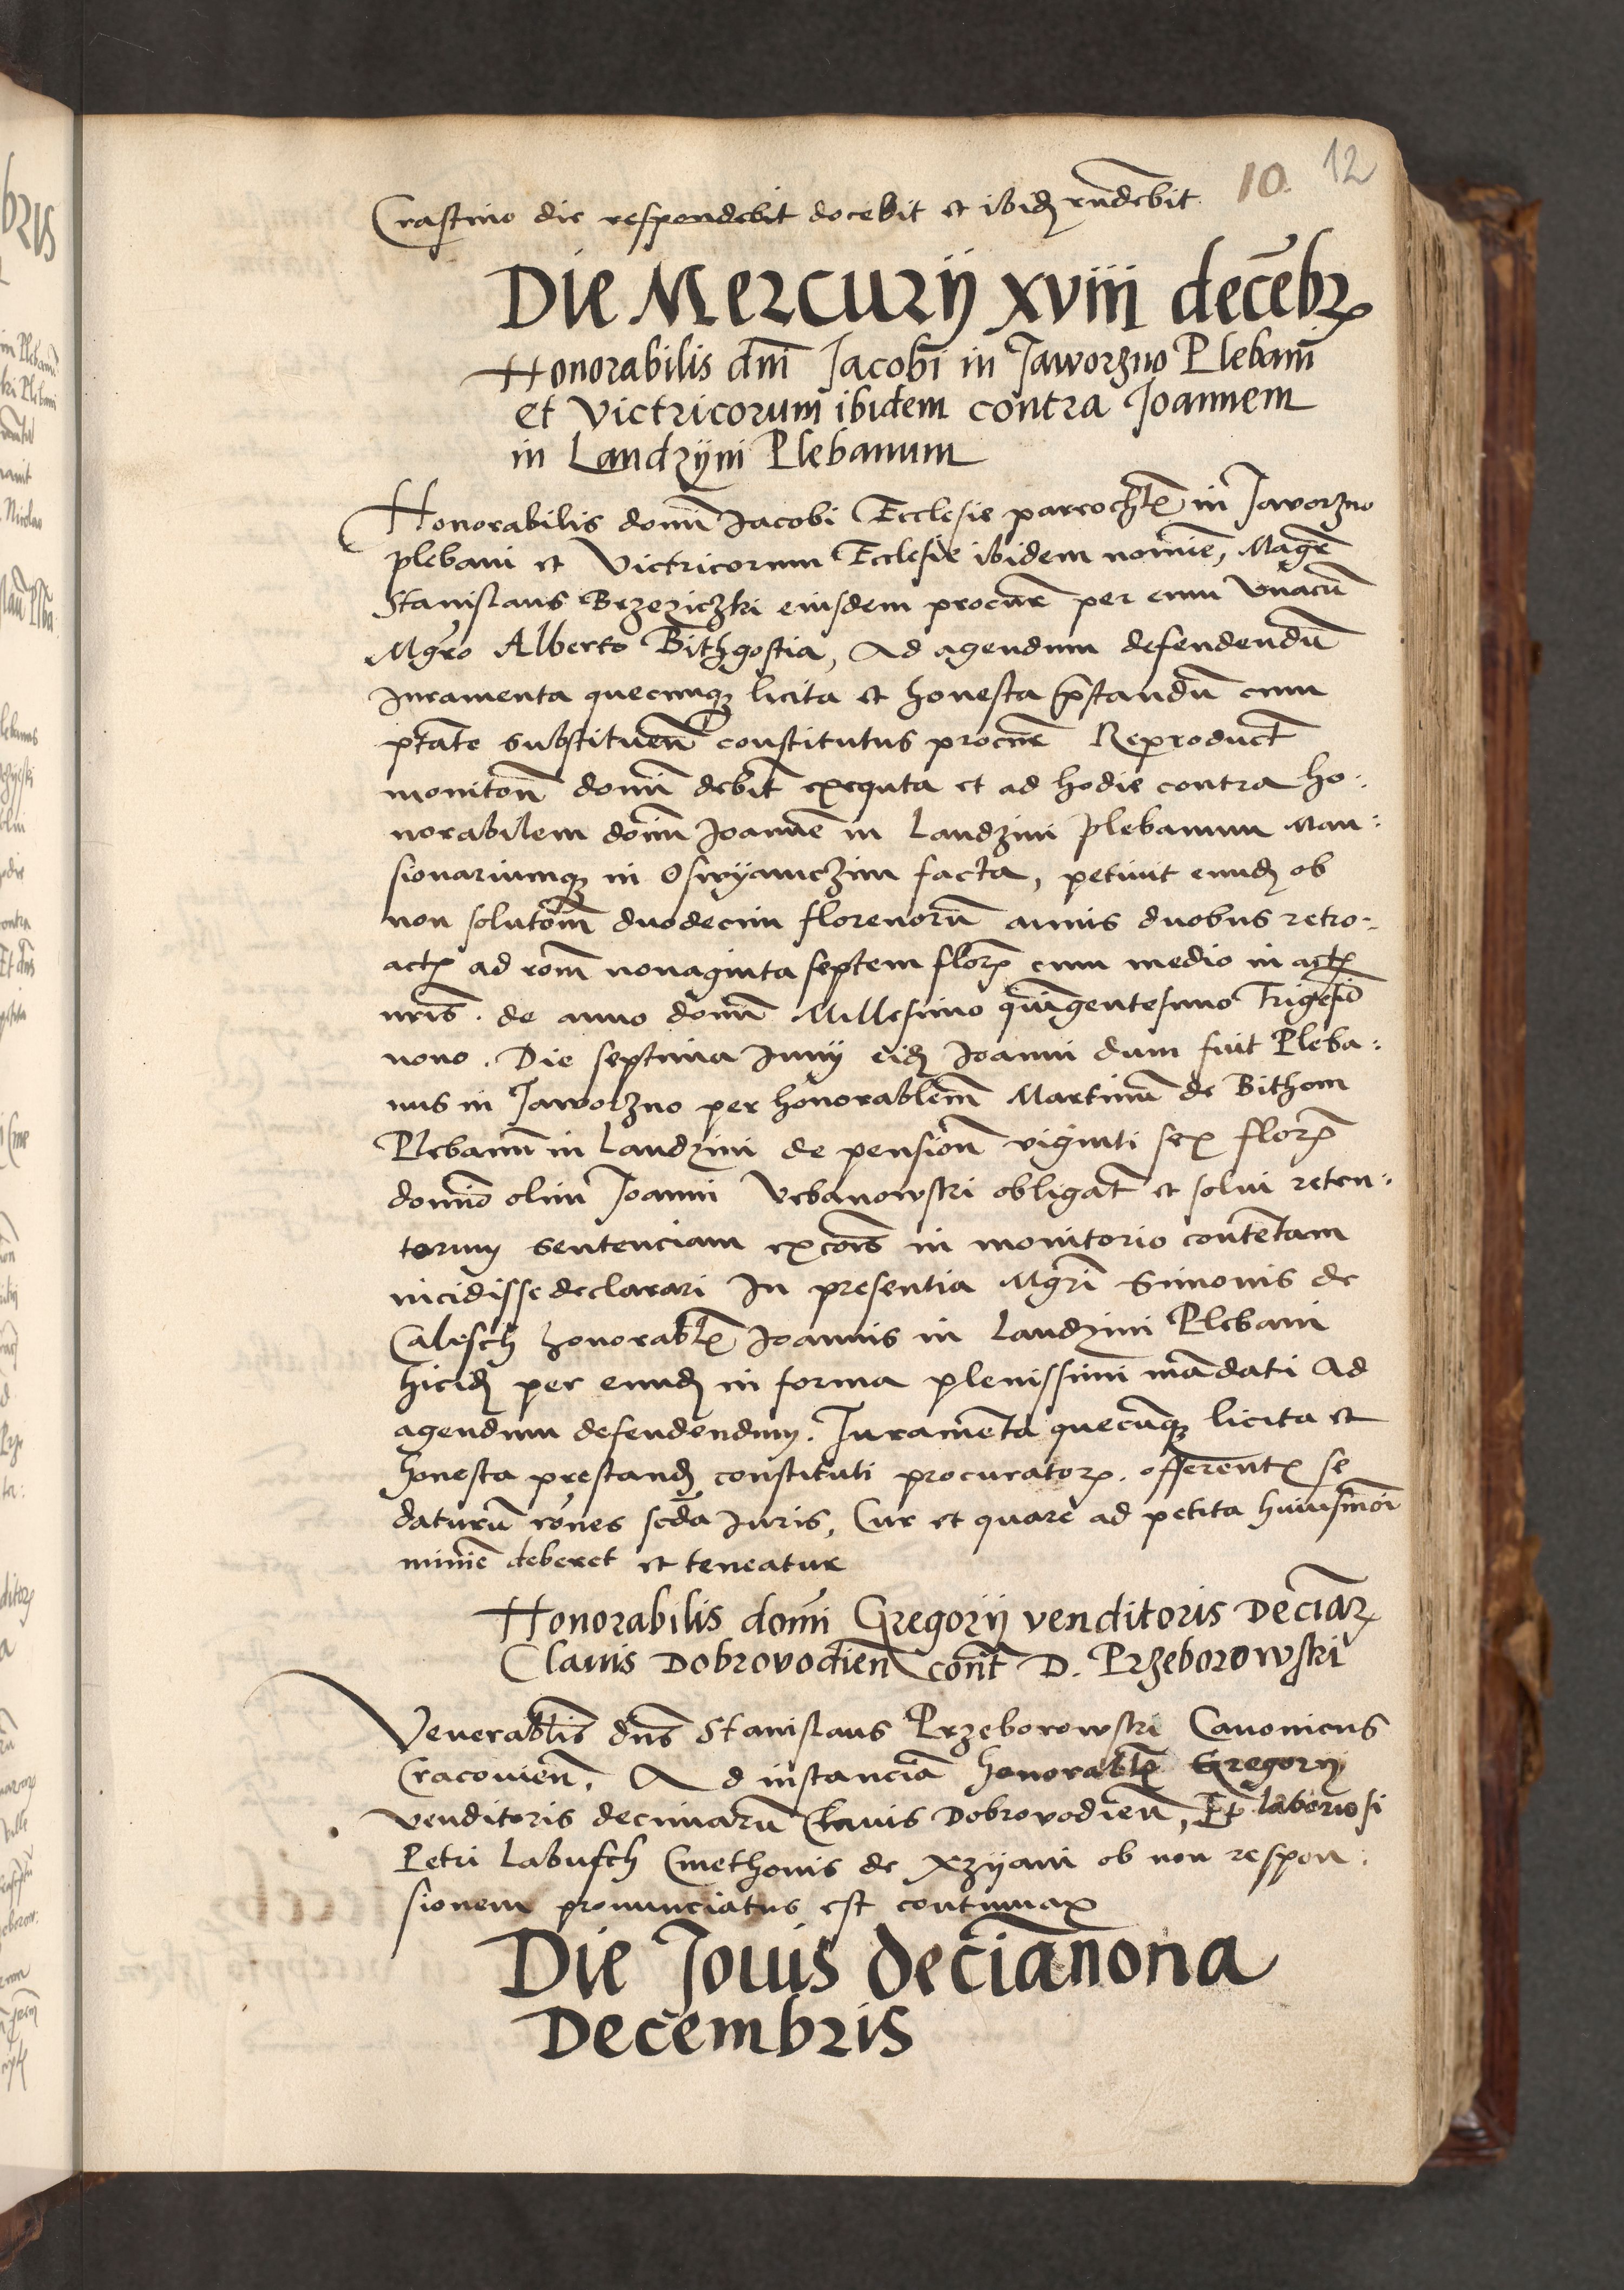 10. 12
Crastino die respondebit docebit et ibidẽ rñdebit
Die Mercurÿ xviii decẽbrꝭ
Honorabilis dñi Jacobi in Jaworzno Plebani
et Victricorum ibidem contra Joannem
in Landzÿni Plebanum
Honorabilis domĩ Jacobi Ecclesie parrochꝭ in Jaworzno
plebani et Victricorum Ecclesie ibidem nomiẽ, Magr̃
Stanislaus Brzeziczki eiusdem procur̃ per eum vnacũ
Mgr̃o Alberto Bithgostia, Ad agendum defendendũ
Juramenta quecunqꝫ licita et honesta p̃standũ cum
ptãte substituen̄ constitutus procur̃ Reproduct̃
monitoñ domĩ debit̃ exequta et ad hodie contra ho:
norabilem domũ Joannẽ in Landzini plebanum Man:
sionariumqꝫ in Oswÿanczim facta, petiuit eundẽ ob
non solutõm̃ duodecim florenorũ annis duobus retro:
actꝭ ad rõm̃ nonaginta septem florꝭ cum medio in actꝭ
nrĩs. de anno domĩ Millesimo quĩgentesimo Trigesĩo
nono. Die septima Junÿ eidẽ Joanni dum fuit Pleba:
nus in Jaworzno per honorablem̃ Martinũ de Bithom
Plebanũ in Landzini de pensioñ viginti sex florꝭ
domĩo olim Joanni Vrbanowski obligat̃ et solui reten:
torum sentenciam excõis in monitorio contẽtam
incidisse declarari In presentia Mgr̃i Simonis de
Calisch honorablꝭ Joannis in Landzini Plebani
hicidẽ per eundẽ in forma plenissimi mãdati Ad
agendum defendendum. Juramẽta quecũqꝫ licita et
honesta prestandẽ constituti procuratorꝭ. offerentꝭ se
daturũ rõnes scd̃a Juris, Cur et quare ad petita huiusmõi
minĩe deberet et teneatur
Honorabilis domĩ Gregorÿ venditoris Deciarꝭ
Clauis Dobrovodien̄ cont̃ D. Przeborowski
Venerablis̃ dñs Stanislaus Przeborowski Canonicus
Cracouien̄. Ad instanciã honorablꝭ Gregorÿ
venditoris decimarũ Clauis Dobrovodien̄, Et laboriosi
Petri Labusch Cmethonis de Xzÿani ob non respon:
sionem pronunciatus est contumax
Die Jouis decianona
Decembris